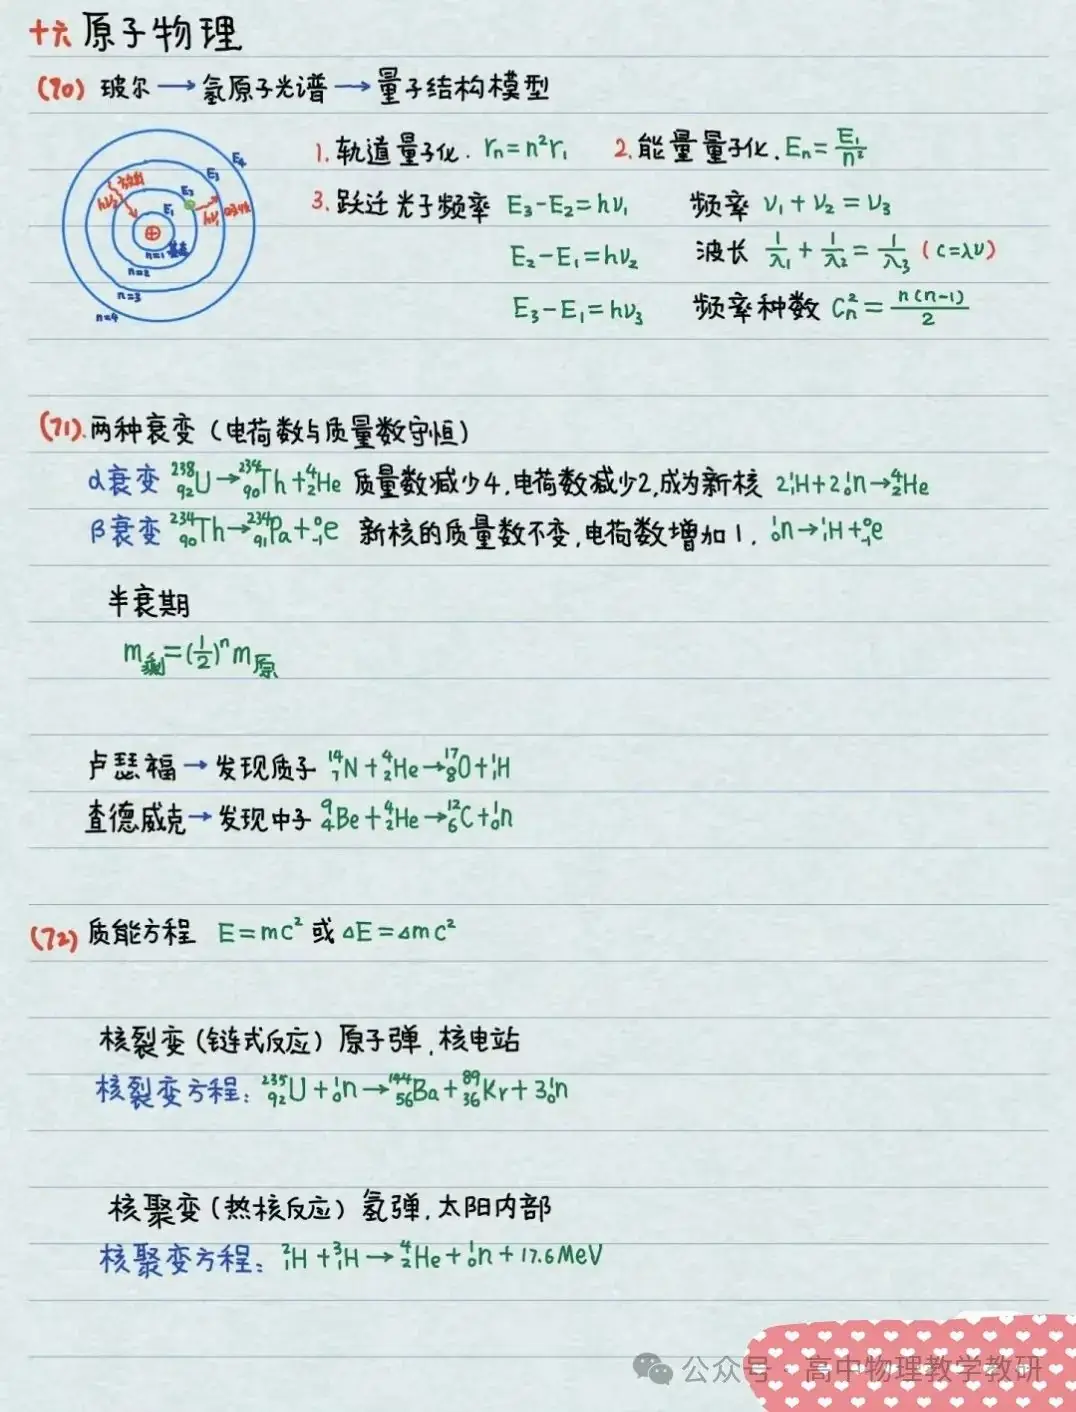 十六 原子物理
(70) 玻尔→氢原子光谱→量子结构模型
1. 轨道量子化. rₙ=n²r₁ 2. 能量量子化. Eₙ=E₁/n²
3. 跃迁光子频率 E₃-E₂=hν₁ 频率 ν₁+ν₂=ν₃
E₂-E₁=hν₂ 波长 1/λ₁+1/λ₂=1/λ₃ (c=λν)
E₃-E₁=hν₃ 频率种数 Cₙ²=n(n-1)/2
E₄
E₃
E₂
E₁
放出
hν₂
hν₁ 吸收
n=1 基态
n=2
n=3
n=4
(71). 两种衰变 (电荷数与质量数守恒)
α衰变 ²³⁸₉₂U→²³⁴₉₀Th+⁴₂He 质量数减少4,电荷数减少2,成为新核 2¹₁H+2¹₀n→⁴₂He
β衰变 ²³⁴₉₀Th→²³⁴₉₁Pa+⁰₋₁e 新核的质量数不变,电荷数增加1. ¹₀n→¹₁H+⁰₋₁e
半衰期
m剩=(1/2)ⁿm原
卢瑟福→发现质子 ¹⁴₇N+⁴₂He→¹⁷₈O+¹₁H
查德威克→发现中子 ⁹₄Be+⁴₂He→¹²₆C+¹₀n
(72) 质能方程 E=mc² 或 ΔE=Δmc²
核裂变 (链式反应) 原子弹,核电站
核裂变方程: ²³⁵₉₂U+¹₀n→¹⁴⁴₅₆Ba+⁸⁹₃₆Kr+3¹₀n
核聚变 (热核反应) 氢弹,太阳内部
核聚变方程: ²₁H+³₁H→⁴₂He+¹₀n+17.6MeV
公众号·高中物理教学教研